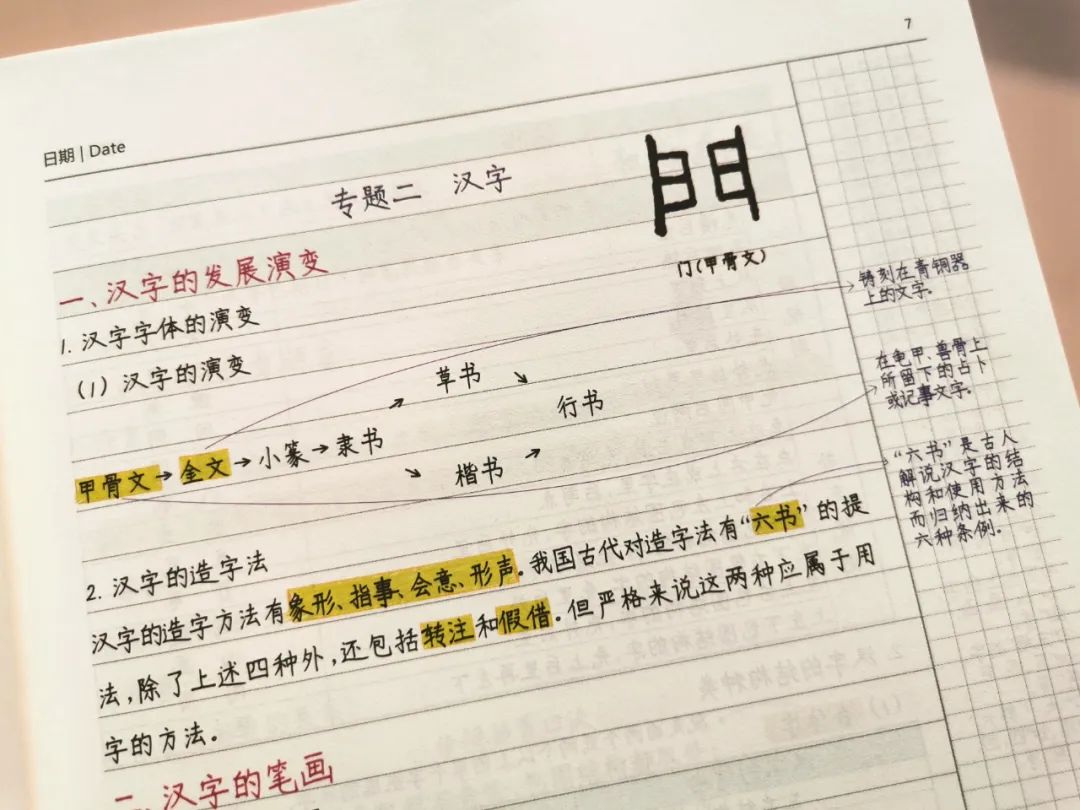 7
日期 | Date
专题二 汉字
門
门(甲骨文)
一、汉字的发展演变
1. 汉字字体的演变
(1) 汉字的演变
草书
行书
甲骨文→金文→小篆→隶书
楷书
2. 汉字的造字法
汉字的造字方法有象形、指事、会意、形声。我国古代对造字法有“六书”的提
法,除了上述四种外,还包括转注和假借。但严格来说这两种应属于用
字的方法。
二、汉字的笔画
铸刻在青铜器
上的文字。
在龟甲、兽骨上
所留下的占卜
或记事文字。
“六书”是古人
解说汉字的结
构和使用方法
而归纳出来的
六种条例。